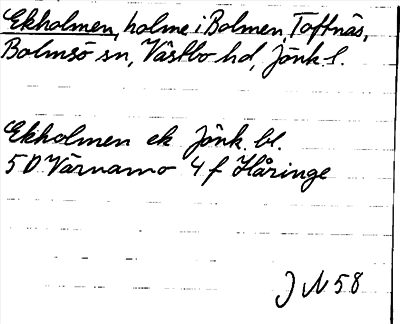 Ekholmen, holme i Bolmen, Toftnäs,
Bolmsö sn, Västbo hd, Jönk. l.
Ekholmen ek Jönk. bl.
5 D Värnamo 4 f Håringe
J M 58